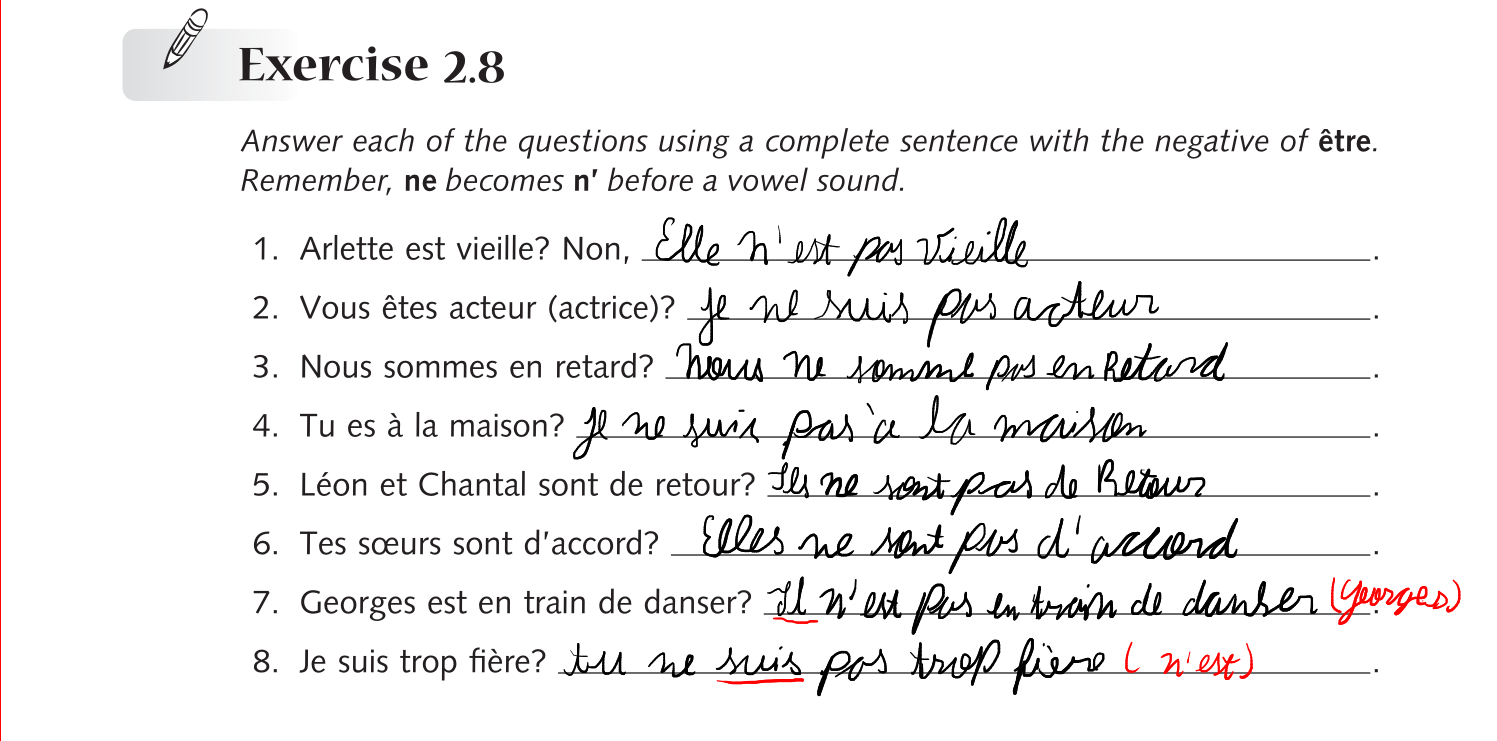 Exercise 2.8
Answer each of the questions using a complete sentence with the negative of être.
Remember, ne becomes n' before a vowel sound.
1. Arlette est vieille? Non, Elle n'est pas vieille.
2. Vous êtes acteur (actrice)? Je ne suis pas acteur.
3. Nous sommes en retard? Nous ne somme pas en Retard.
4. Tu es à la maison? Je ne suis pas à la maison.
5. Léon et Chantal sont de retour? Ils ne sont pas de Retour.
6. Tes sœurs sont d'accord? Elles ne sont pas d'accord.
7. Georges est en train de danser? Il n'est pas en train de danser (Georges).
8. Je suis trop fière? tu ne suis pas trop fière (n'est).